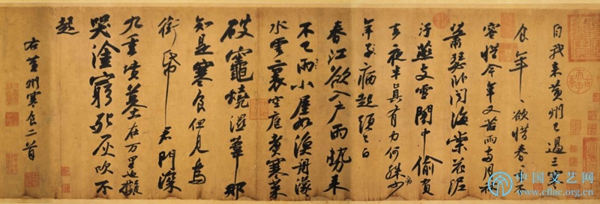 自我來黃州已過三寒
食年〻欲惜春春去不
容惜今年又苦雨兩月秋
蕭瑟臥聞海棠花泥
汙燕支雪闇中偷負
去夜半真有力何殊少
年子病起頭已白
春江欲入戶雨勢來
不已雨小屋如漁舟濛〻
水雲裏空庖煮寒菜
破竈燒濕葦那
知是寒食但見烏
銜帋君門深
九重墳墓在万里也擬
哭塗窮死灰吹不
起
右黃州寒食二首
中国文艺网
www.cflac.org.cn